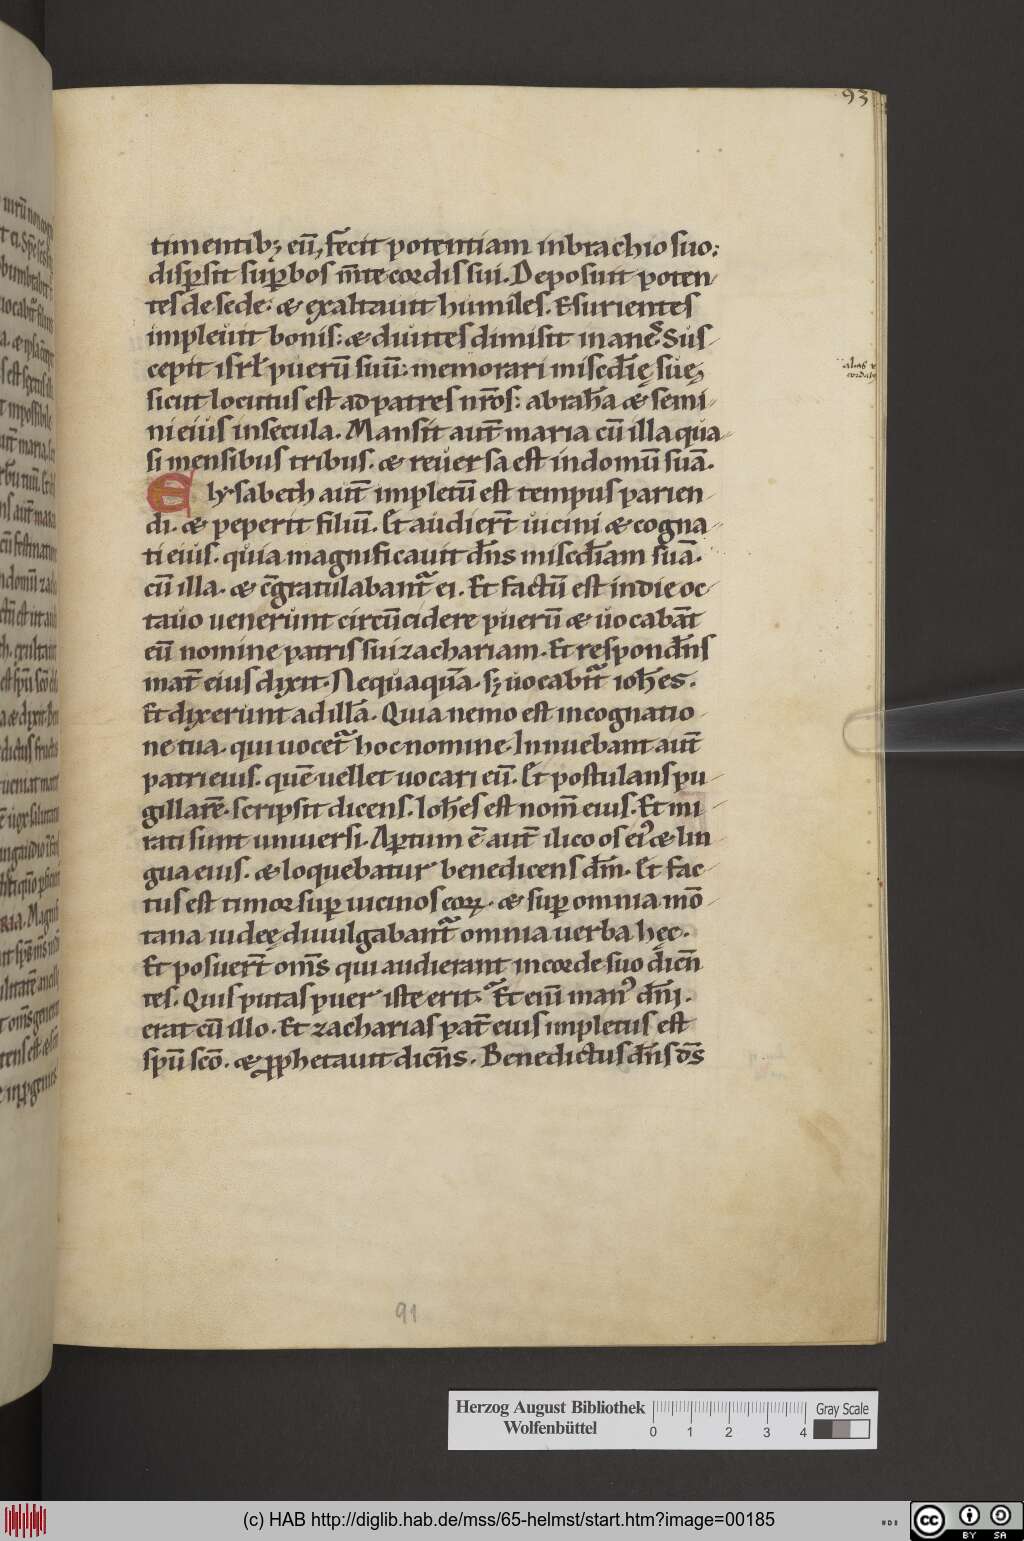 93
timentib; eū, fecit potentiam in brachio suo:
dispsit supbos m̄te cordis sui. Deposuit poten-
tes de sede: & exaltauit humiles. Esurientes
impleuit bonis: & diuites dimisit inanes. Sus-
cepit isrl̄ puerū suū: memorari misc̄dię suę,
sicut locutus est ad patres nr̄os: abrahā & semi-
ni eius in secula. Mansit aut̄ maria cū illa qua-
si mensibus tribus. & reuersa est in domū suā.
Elysabeth aut̄ impletū est tempus parien-
di. & peperit filiū. Et audiert̄ uicini & cogna-
ti eius. quia magnificauit dn̄s misc̄diam suā.
cū illa. & cḡratulabant̄ ei. Et factū est in die oc-
tauo uenerunt circūcidere puerū & uocabāt
eū nomine patris sui zachariam. Et respondēns
mat̄ eius dixit. Nequaquā. s; uocabit̄ ioh̄es.
Et dixerunt ad illā. Quia nemo est in cognatio-
ne tua. qui uocet̄ hoc nomine. Innuebant aut̄
patri eius. quē uellet uocari eū. Et postulans pu-
gillarē. scripsit dicens. Ioh̄es est nom̄ eius. Et mi-
rati sunt uniuersi. Aptum ē aut̄ ilico os ei9 & lin-
gua eius. & loquebatur benedicens dm̄. Et fac-
tus est timor sup uicinos eoꝝ. & sup omnia mō-
tana iudeę diuulgabant̄ omnia uerba hęc.
Et posuert̄ om̄s qui audierant in corde suo dicn̄
tes. Quis putas puer iste erit. Et eni man9 dn̄i.
erat cū illo. Et zacharias pat̄ eius impletus est
spū sc̄o. & pphetauit dicn̄s. Benedictus dn̄s ds̄
91
Herzog August Bibliothek
Wolfenbüttel
0 1 2 3 4
Gray Scale
(c) HAB http://diglib.hab.de/mss/65-helmst/start.htm?image=00185
cc BY SA